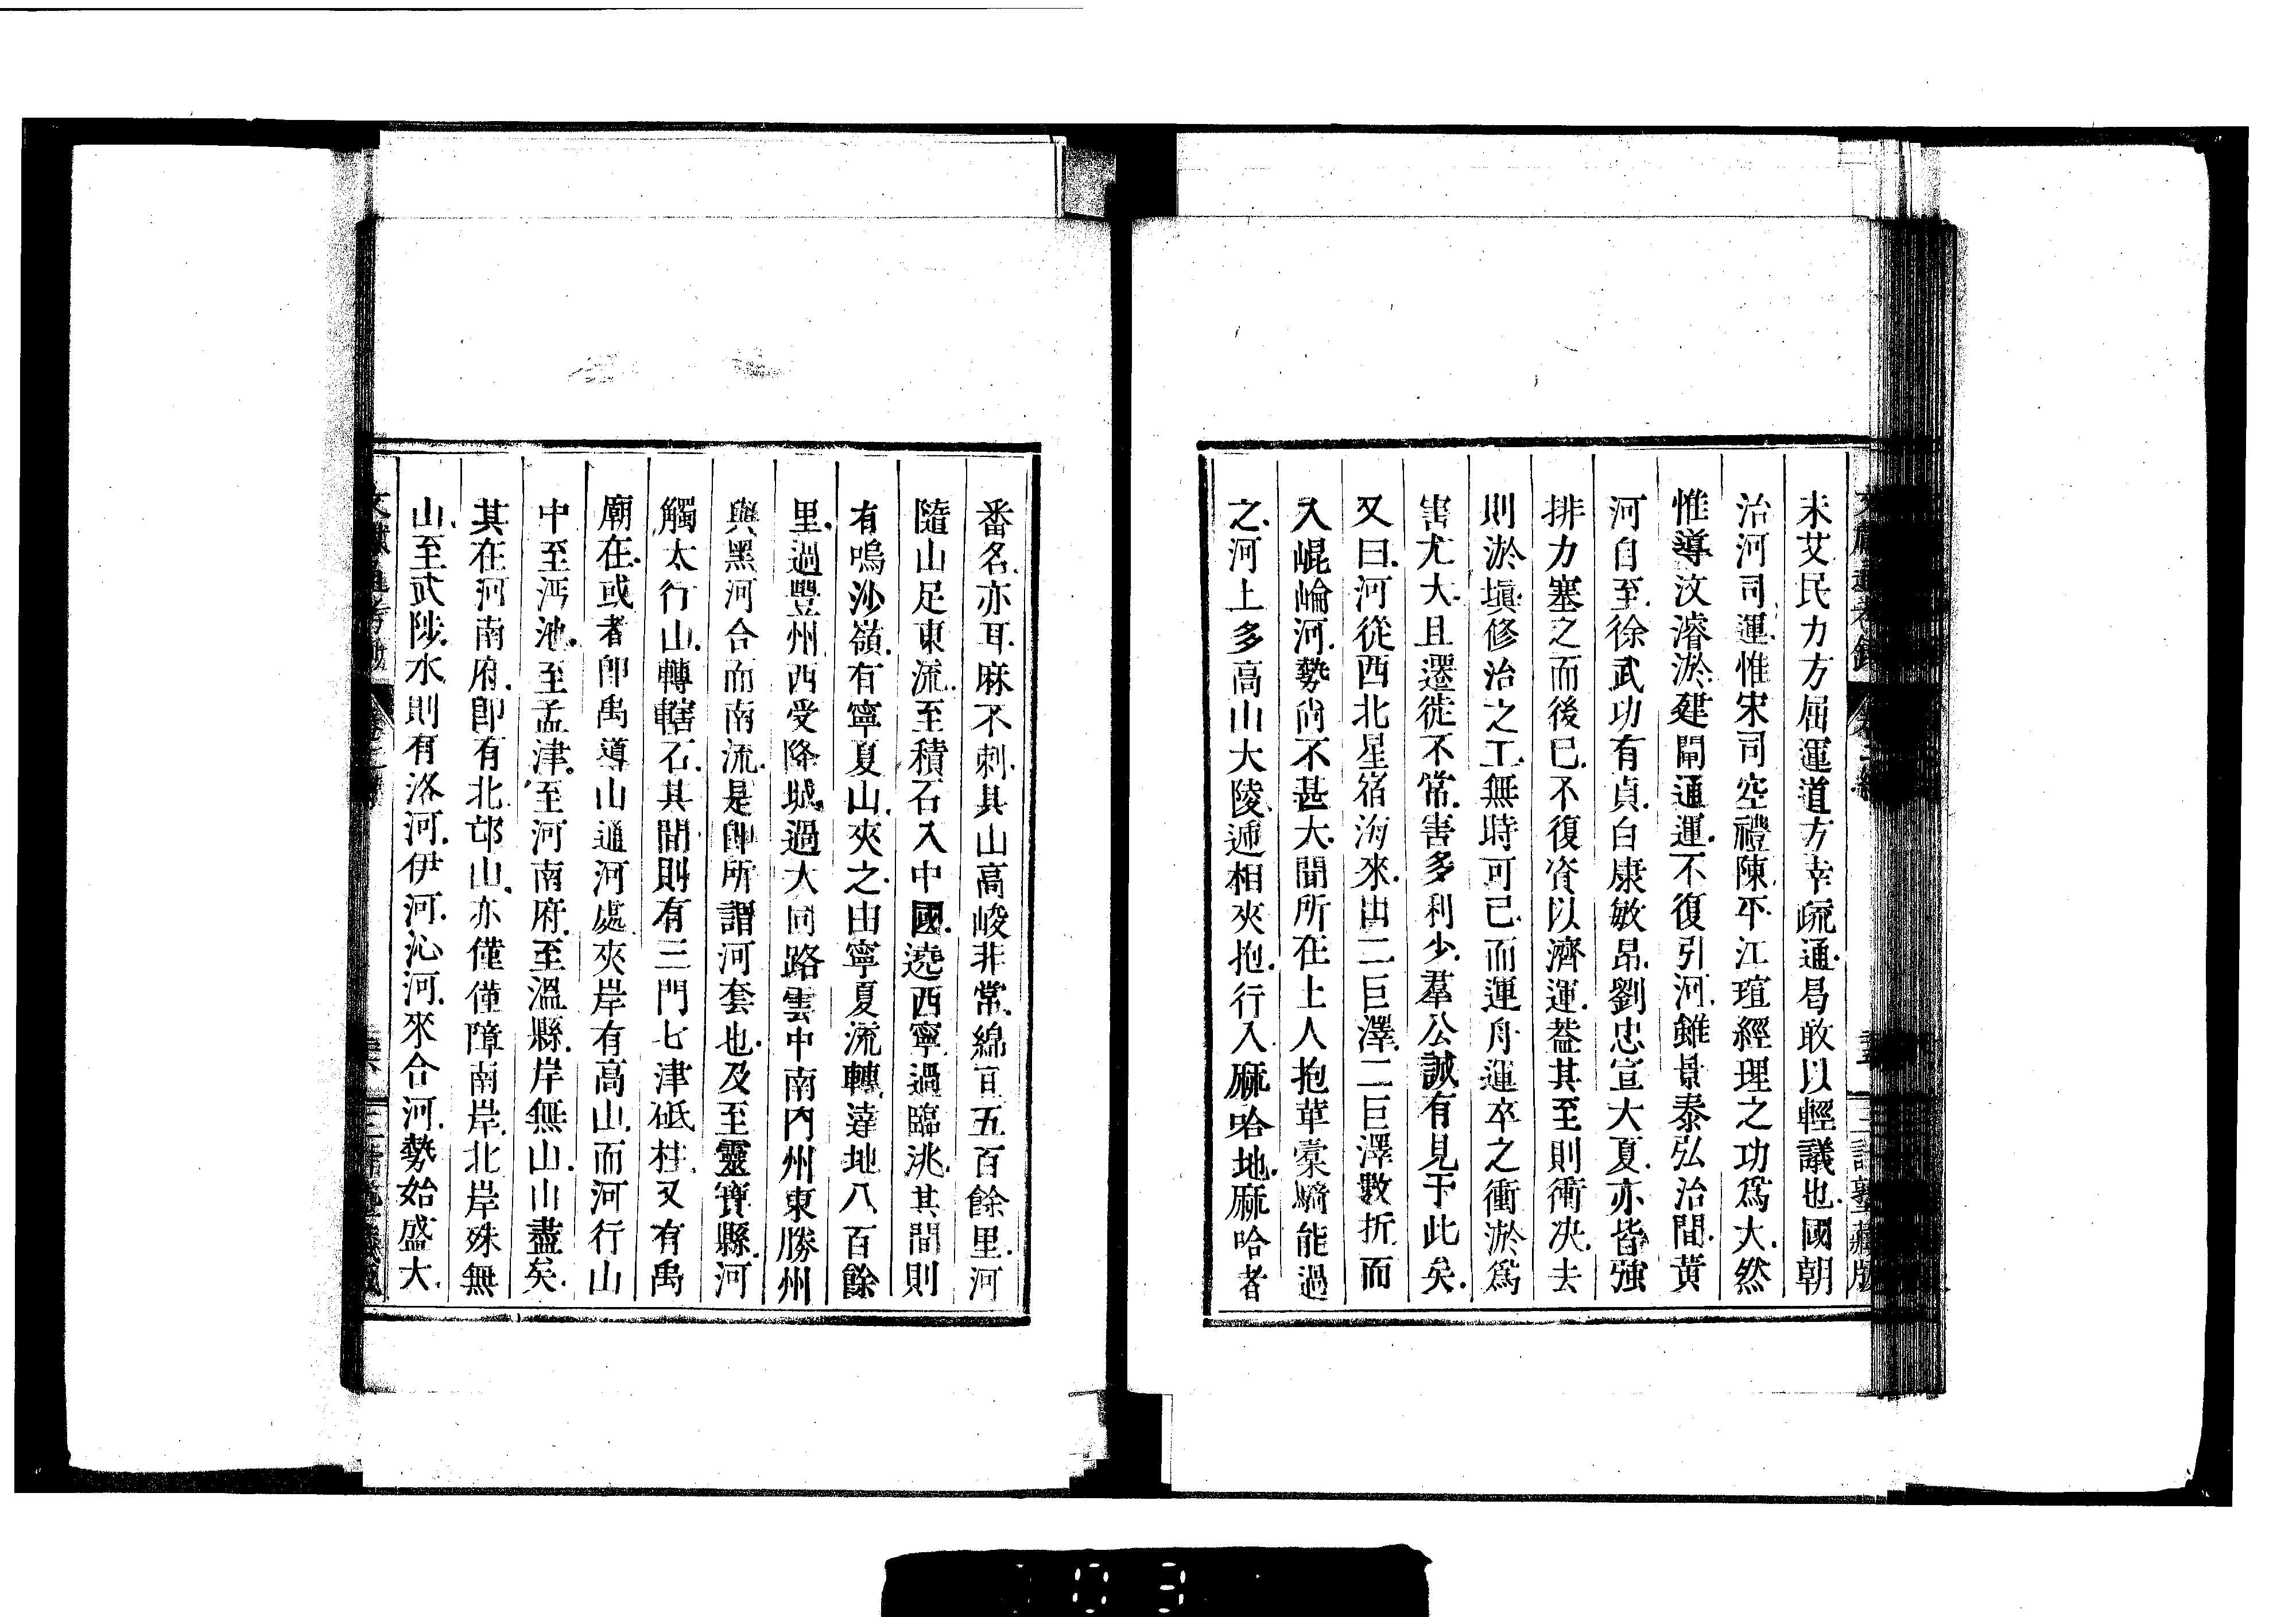 未艾民力方屈運道方幸疏通曷敢以輕議也國朝
治河司運惟宋司空禮陳平江瑄經理之功爲大然
惟導汶濬淤建閘通運不復引河雖景泰弘治間黄
河自至徐武功有貞白康敏昂劉忠宣大夏亦皆強
排力塞之而後已不復資以濟運葢其至則衝决去
則淤塡修治之工無時可已而運舟運卒之衝淤爲
害尤大且遷徙不常害多利少羣公誠有見于此矣
又曰河從西北星宿海來出二巨澤二巨澤數折而
入崐崘河勢尚不甚大聞所在上人抱革橐騎能過
之河上多高山大陵逓相夾抱行入麻哈地麻哈者
番名亦耳麻不刺其山高峻非常綿亘五百餘里河
隨山足東流至積石入中國遶西寧過臨洮其間則
有鳴沙嶺有寧夏山夾之由寧夏流轉達地八百餘
里過豐州西受降城過大同路雲中南内州東勝州
與黑河合而南流是卽所謂河套也及至靈寶縣河
觸太行山轉轄石其間則有三門七津砥柱又有禹
廟在或者卽禹導山通河處夾岸有高山而河行山
中至沔池至孟津至河南府至溫縣岸無山山盡矣
其在河南府卽有北邙山亦僅僅障南岸北岸殊無
山至武陟水則有洛河伊河沁河來合河勢始盛大
103